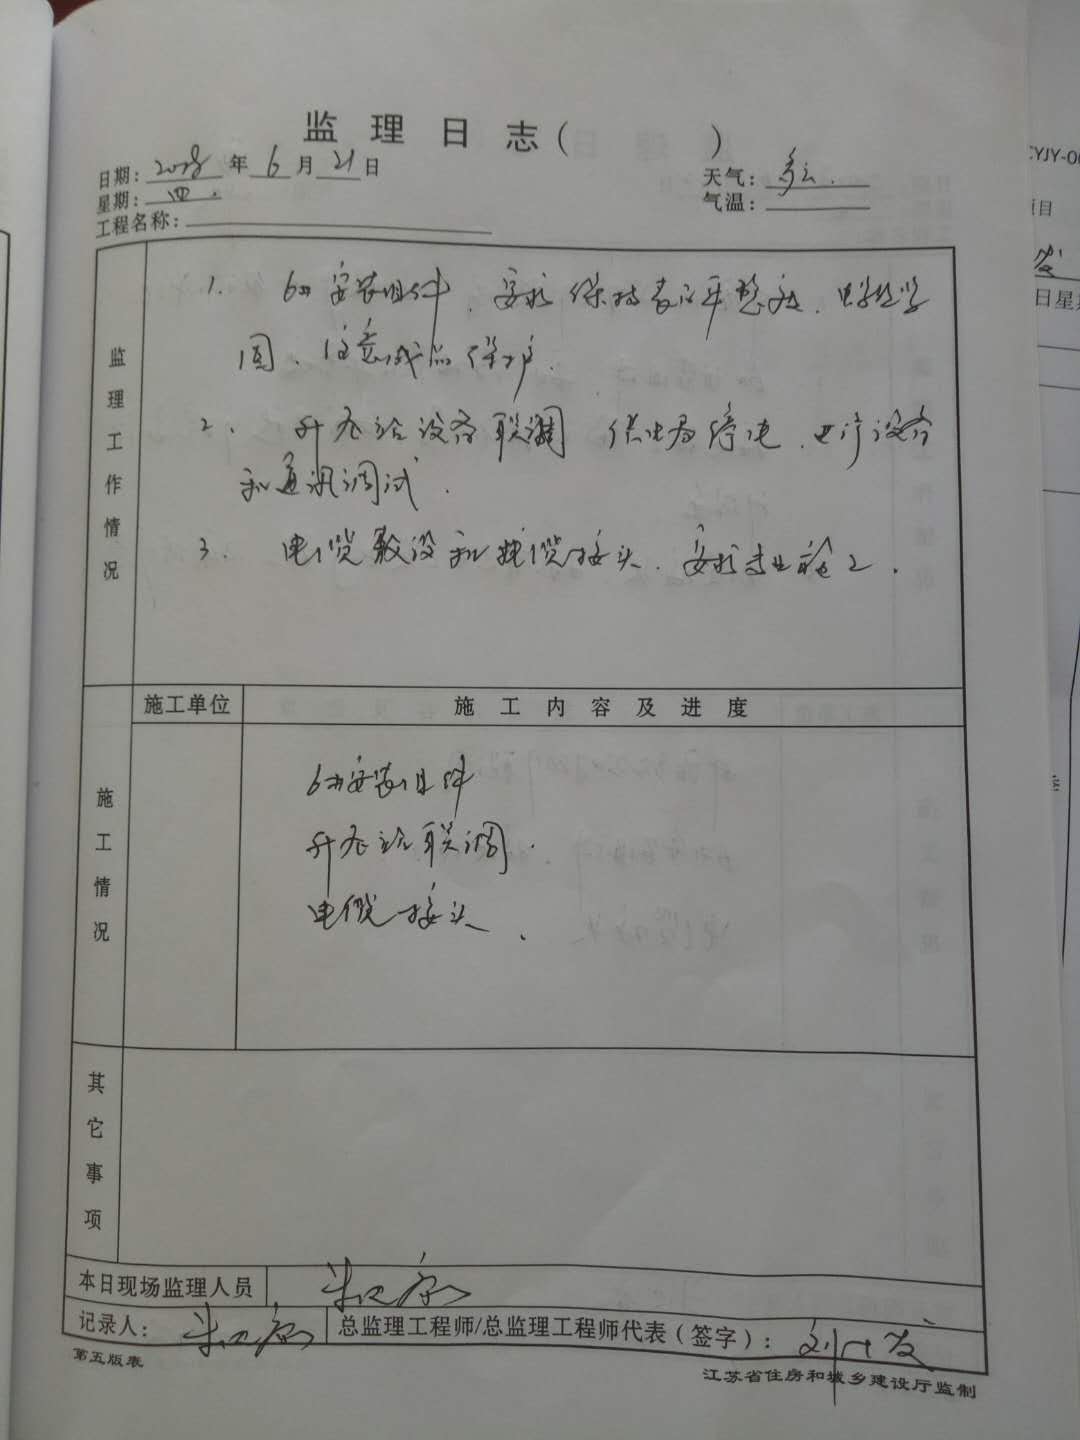 监理日志( )
日期:2018年6月21日
天气:多云.
星期:四.
气温:
工程名称:
监理工作情况
1. 6#安装组件、要求保持表面平整度、
固、注意成品保护.
2. 升压站设备联调 供电局停电、进行设备
和通讯调试.
3. 电缆敷设和电缆接头、要求专业施工.
施工单位
施工内容及进度
施工情况
6#安装组件
升压站联调.
电缆接头.
其它事项
本日现场监理人员
记录人:
总监理工程师/总监理工程师代表(签字):
第五版表
江苏省住房和城乡建设厅监制
CYJY-00
项目
发
日星